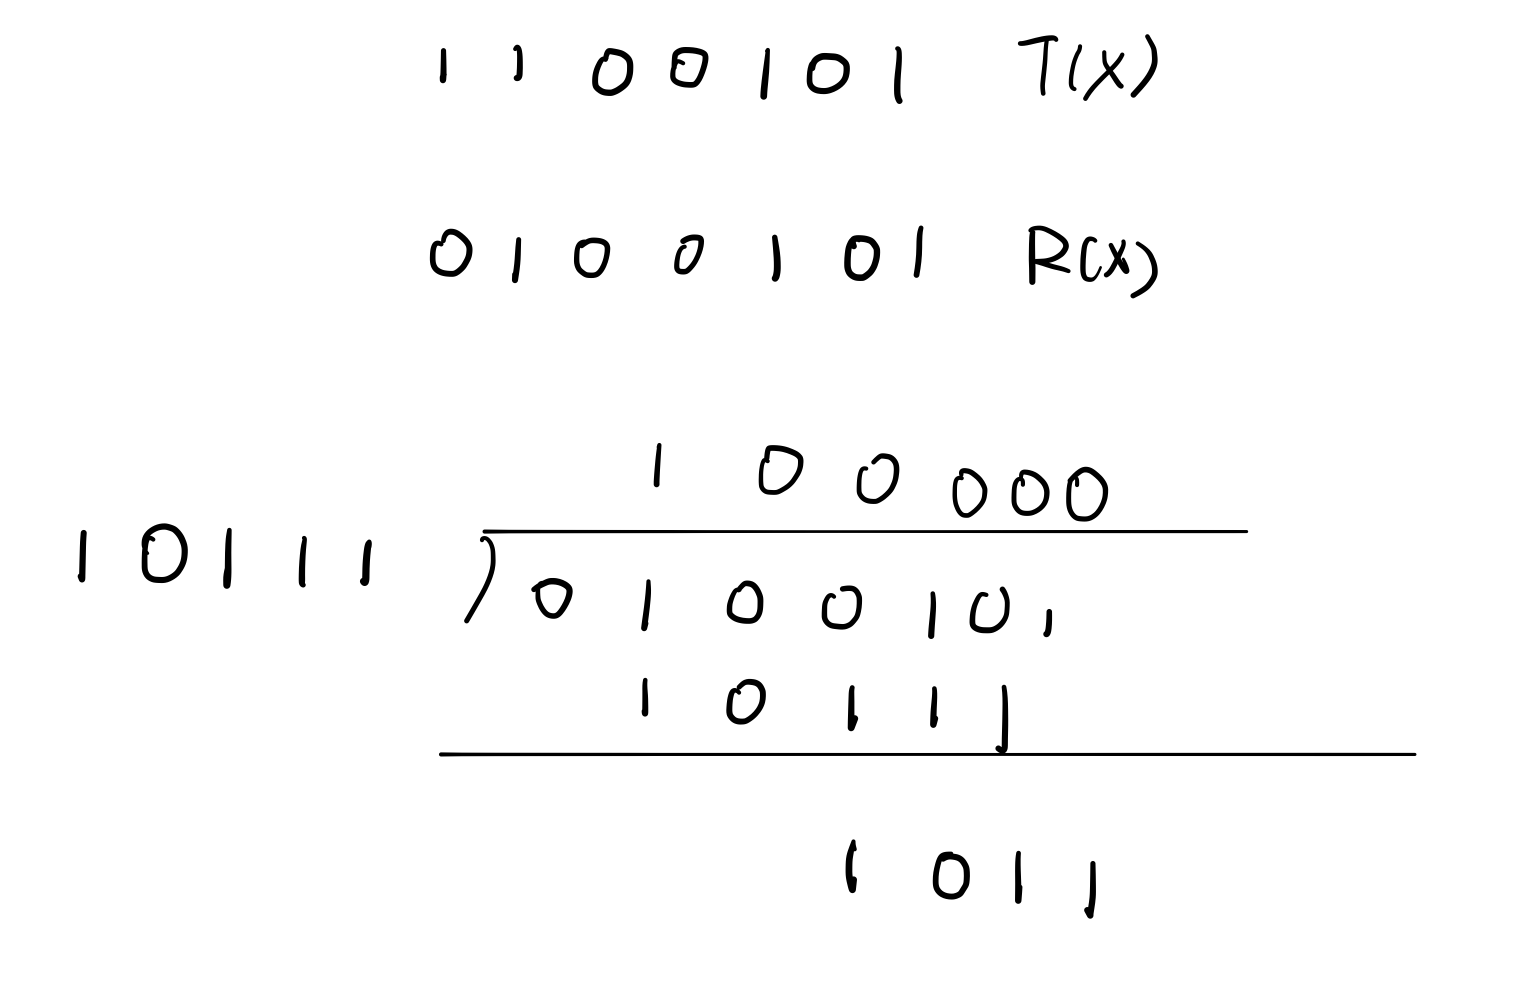 1 1 0 0 1 0 1 T(X)
0 1 0 0 1 0 1 R(X)
1 0 0 0 0 0
1 0 1 1 1 ) 0 1 0 0 1 0 1
1 0 1 1 1
1 0 1 1